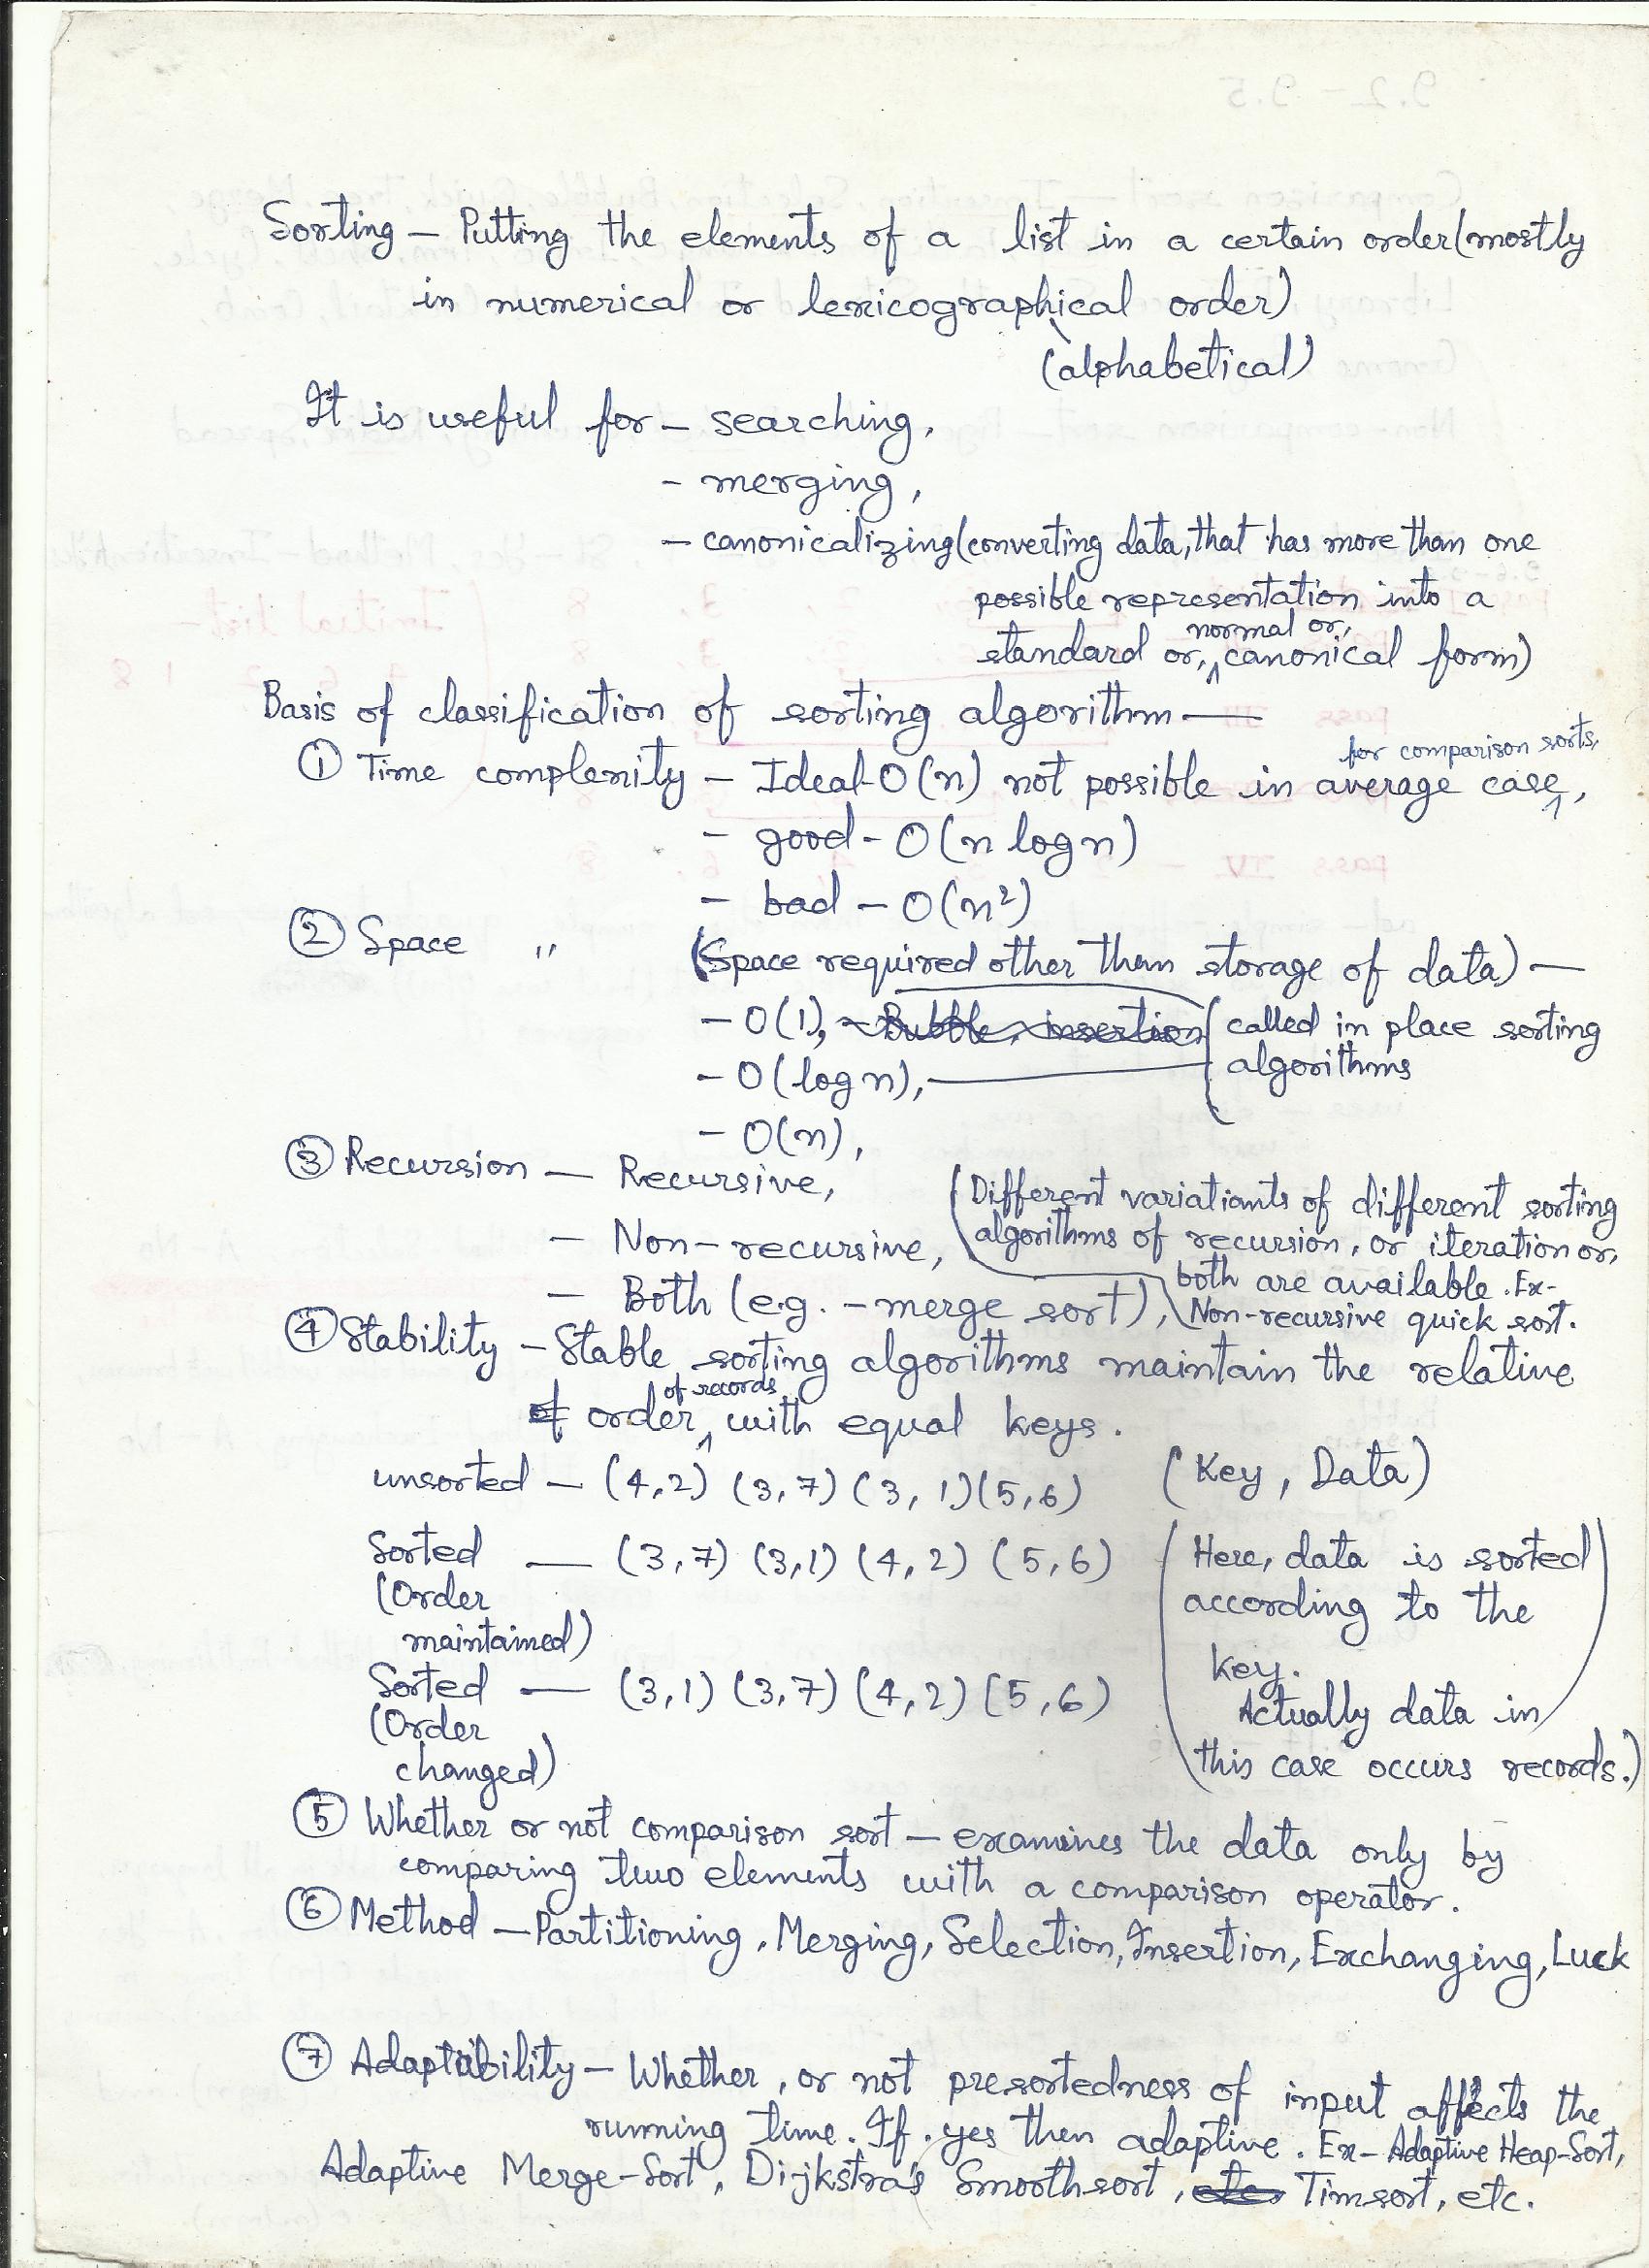 Sorting – Putting the elements of a list in a certain order (mostly
in numerical or lexicographical order)
(alphabetical)
It is useful for – searching,
- merging,
- canonicalizing (converting data, that has more than one
possible representation into a
normal or,
standard or, canonical form)
Basis of classification of sorting algorithm —
for comparison sorts,
① Time complexity – Ideal-O(n) not possible in average case,
- good - O(n log n)
- bad – O(n²)
② Space " (Space required other than storage of data) —
- O(1), - Bubble, insertion (called in place sorting
- O(log n), algorithms
- O(n),
③ Recursion — Recursive, (Different variatiants of different sorting
- Non-recursive, algorithms of recursion, or iteration or,
both are available. Ex-
- Both (e.g. - merge sort), Non-recursive quick sort.
④ Stability – Stable sorting algorithms maintain the relative
of records
of order, with equal keys.
unsorted – (4,2) (3,7) (3,1) (5,6) (Key, Data)
Sorted — (3,7) (3,1) (4,2) (5,6) (Here, data is sorted
(Order according to the
maintained) key.
Sorted — (3,1) (3,7) (4,2) (5,6) Actually data in
(Order
changed) this case occurs records.)
⑤ Whether or not comparison sort – examines the data only by
comparing two elements with a comparison operator.
⑥ Method – Partitioning, Merging, Selection, Insertion, Exchanging, Luck
⑦ Adaptability – Whether, or not presortedness of input affects the
running time. If yes then adaptive. Ex- Adaptive Heap-Sort,
Adaptive Merge-Sort, Dijkstra's Smoothsort, etc. Timsort, etc.